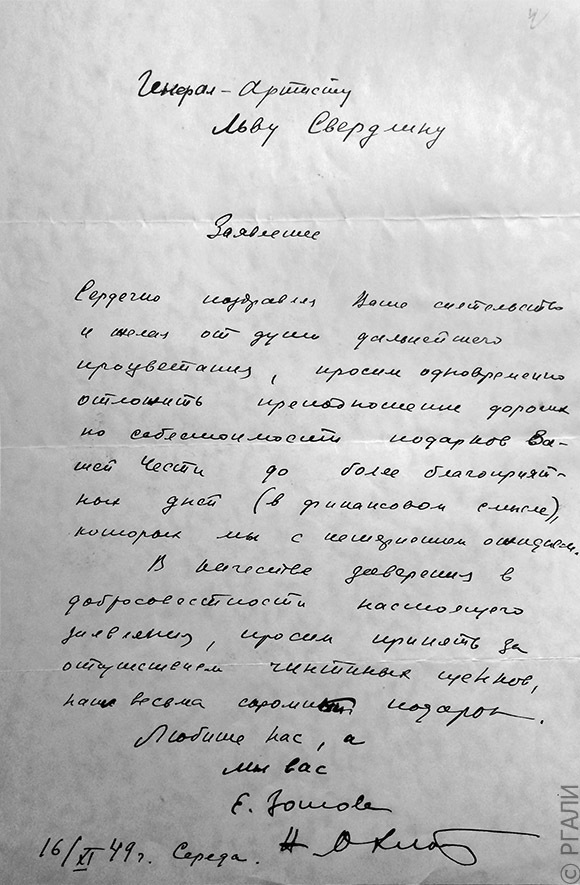 Генерал-артисту
Льву Свердлину
Заявление
Сердечно поздравляя Ваше сиятельство
и желая от души дальнейшего
процветания, просим одновременно
отложить преподношение дорогих
по себестоимости подарков Ва-
шей Чести до более благоприят-
ных дней (в финансовом смысле),
которых мы с нетерпением ожидаем.
В качестве заверения в
добросовестности настоящего
заявления, просим принять за
отсутствием чистых щенков,
наш весьма скромный подарок.
Любите нас, а
мы вас
Е. Зотова
Н Охлоп
16/XI 49 г. Среда.
© РГАЛИ